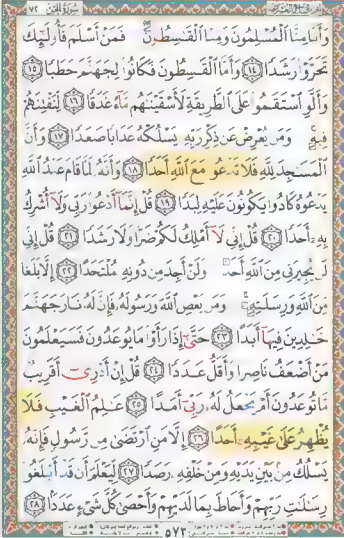 ٧٢ سُورَةُ الجِنّ
وَأَنَّا مِنَّا ٱلْمُسْلِمُونَ وَمِنَّا ٱلْقَٰسِطُونَ ۖ فَمَنْ أَسْلَمَ فَأُو۟لَٰٓئِكَ
تَحَرَّوْا۟ رَشَدًا ﴿١٤﴾ وَأَمَّا ٱلْقَٰسِطُونَ فَكَانُوا۟ لِجَهَنَّمَ حَطَبًا ﴿١٥﴾
وَأَلَّوِ ٱسْتَقَٰمُوا۟ عَلَى ٱلطَّرِيقَةِ لَأَسْقَيْنَٰهُم مَّآءً غَدَقًا ﴿١٦﴾ لِّنَفْتِنَهُمْ
فِيهِ ۚ وَمَن يُعْرِضْ عَن ذِكْرِ رَبِّهِۦ يَسْلُكْهُ عَذَابًا صَعَدًا ﴿١٧﴾ وَأَنَّ
ٱلْمَسَٰجِدَ لِلَّهِ فَلَا تَدْعُوا۟ مَعَ ٱللَّهِ أَحَدًا ﴿١٨﴾ وَأَنَّهُۥ لَمَّا قَامَ عَبْدُ ٱللَّهِ
يَدْعُوهُ كَادُوا۟ يَكُونُونَ عَلَيْهِ لِبَدًا ﴿١٩﴾ قُلْ إِنَّمَآ أَدْعُوا۟ رَبِّى وَلَآ أُشْرِكُ
بِهِۦٓ أَحَدًا ﴿٢٠﴾ قُلْ إِنِّى لَآ أَمْلِكُ لَكُمْ ضَرًّا وَلَا رَشَدًا ﴿٢١﴾ قُلْ إِنِّى
لَن يُجِيرَنِى مِنَ ٱللَّهِ أَحَدٌ وَلَنْ أَجِدَ مِن دُونِهِۦ مُلْتَحَدًا ﴿٢٢﴾ إِلَّا بَلَٰغًا
مِّنَ ٱللَّهِ وَرِسَٰلَٰتِهِۦ ۚ وَمَن يَعْصِ ٱللَّهَ وَرَسُولَهُۥ فَإِنَّ لَهُۥ نَارَ جَهَنَّمَ
خَٰلِدِينَ فِيهَآ أَبَدًا ﴿٢٣﴾ حَتَّىٰٓ إِذَا رَأَوْا۟ مَا يُوعَدُونَ فَسَيَعْلَمُونَ
مَنْ أَضْعَفُ نَاصِرًا وَأَقَلُّ عَدَدًا ﴿٢٤﴾ قُلْ إِنْ أَدْرِىٓ أَقَرِيبٌ
مَّا تُوعَدُونَ أَمْ يَجْعَلُ لَهُۥ رَبِّىٓ أَمَدًا ﴿٢٥﴾ عَٰلِمُ ٱلْغَيْبِ فَلَا
يُظْهِرُ عَلَىٰ غَيْبِهِۦٓ أَحَدًا ﴿٢٦﴾ إِلَّا مَنِ ٱرْتَضَىٰ مِن رَّسُولٍ فَإِنَّهُۥ
يَسْلُكُ مِنۢ بَيْنِ يَدَيْهِ وَمِنْ خَلْفِهِۦ رَصَدًا ﴿٢٧﴾ لِّيَعْلَمَ أَن قَدْ أَبْلَغُوا۟
رِسَٰلَٰتِ رَبِّهِمْ وَأَحَاطَ بِمَا لَدَيْهِمْ وَأَحْصَىٰ كُلَّ شَىْءٍ عَدَدًۢا ﴿٢٨﴾
٥٧٣